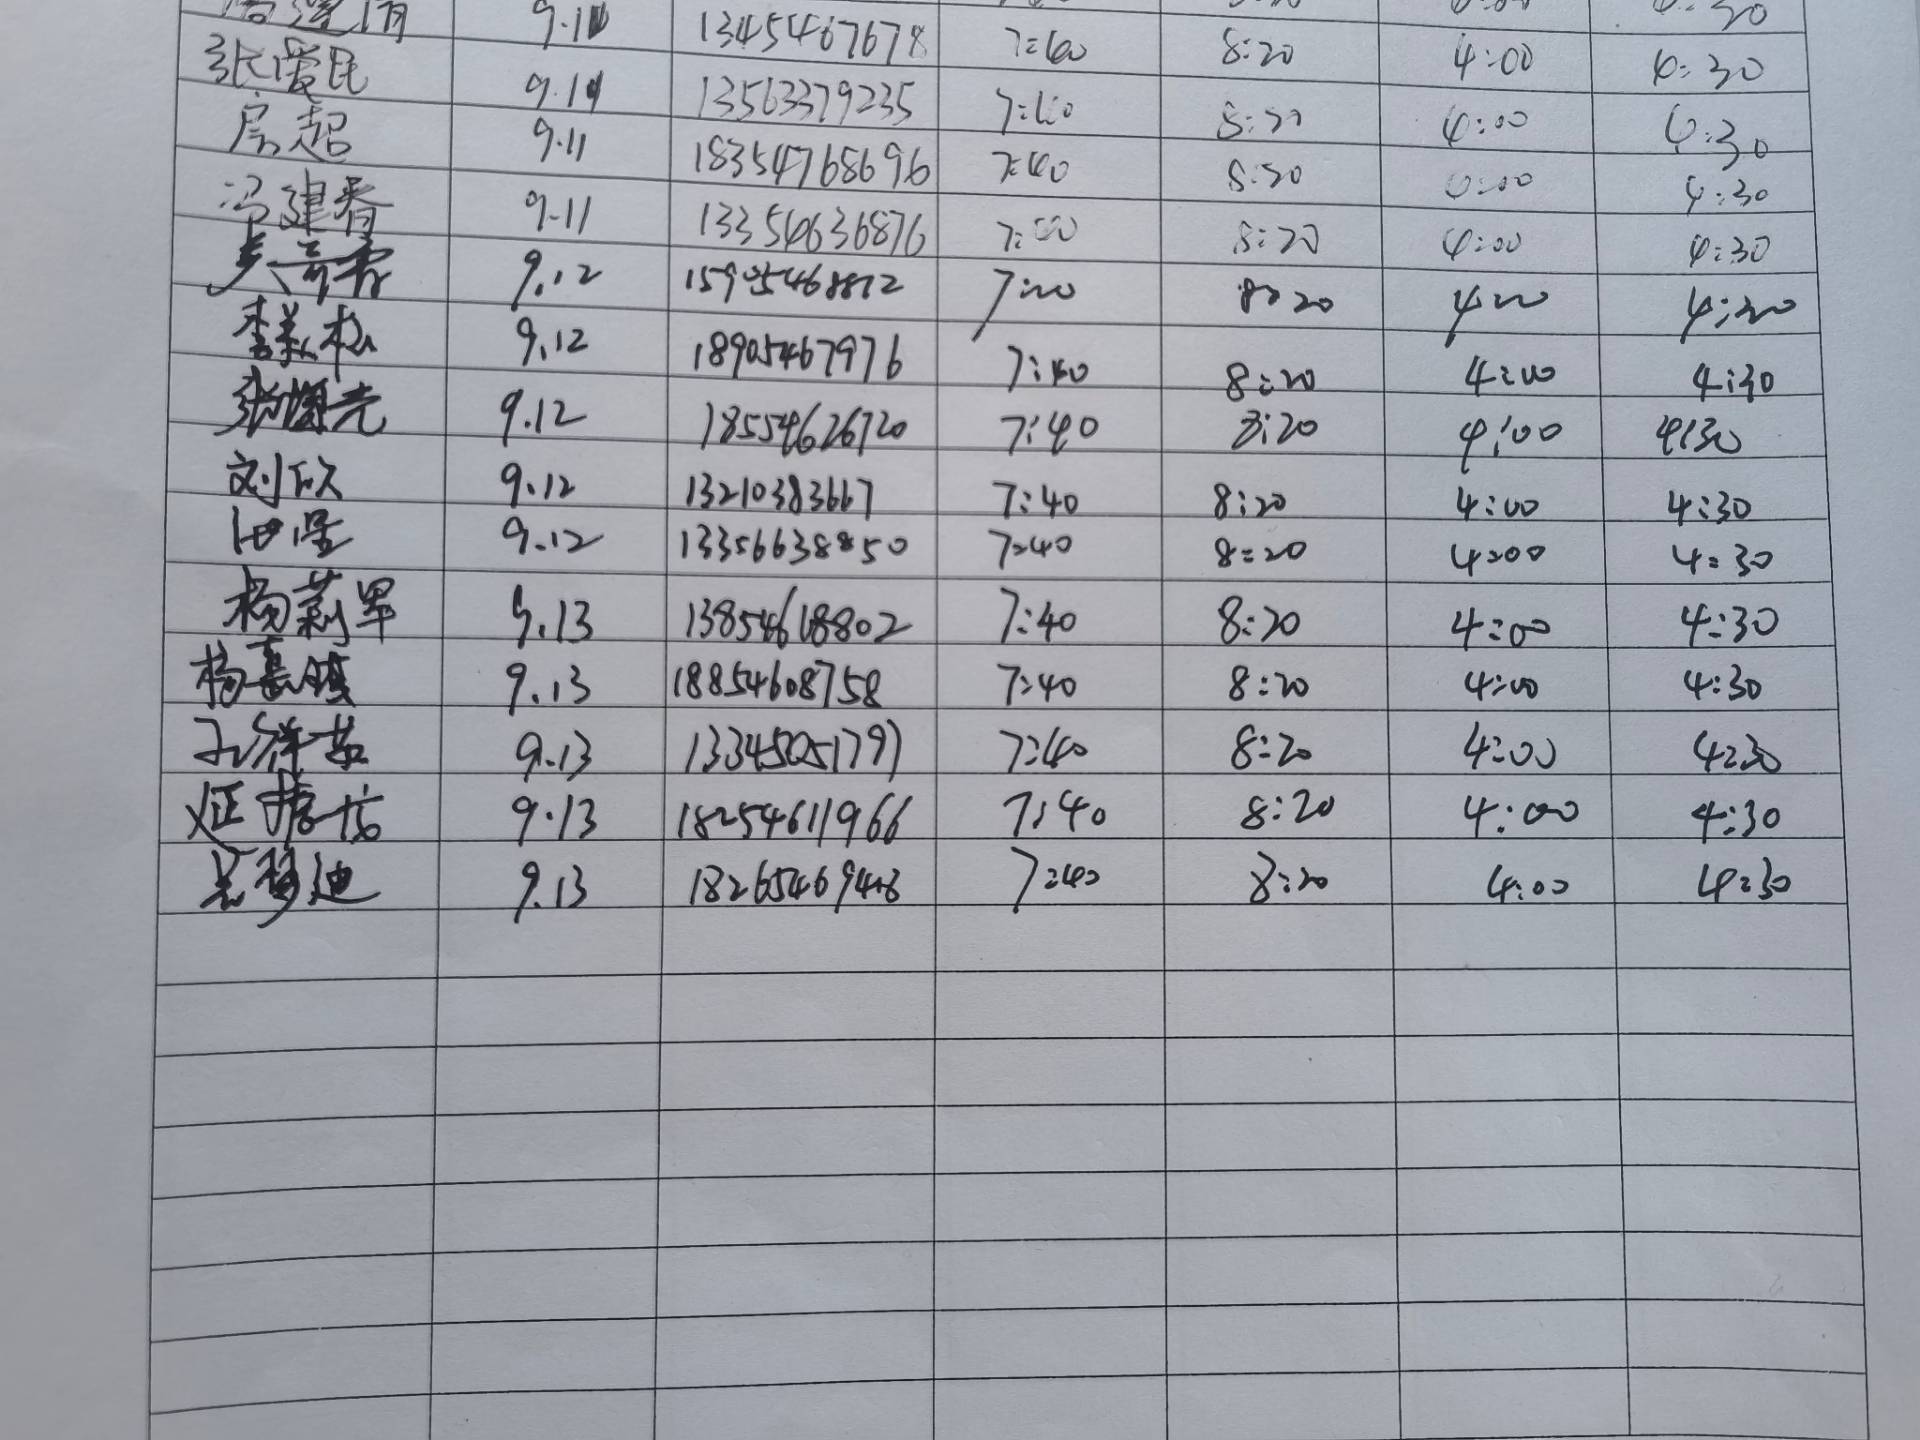 9.11 13454676788 7:40 8:20 4:00 4:30
张爱民 9.11 13563379235 7:40 8:20 4:00 4:30
房超 9.11 18354768696 7:40 8:20 4:00 4:30
冯建春 9.11 13354636876 7:00 8:20 4:00 4:30
9.12 15905468872 8:20 4:00
李美松 9.12 18905467976 7:40 8:20 4:00 4:30
9.12 18554626720 7:40 8:20 4:00 4:30
刘欣 9.12 13210383667 7:40 8:20 4:00 4:30
9.12 13356638850 7:40 8:20 4:00 4:30
杨莉军 9.13 13854618802 7:40 8:20 4:00 4:30
杨嘉 9.13 18854608758 7:40 8:20 4:00 4:30
孔祥茹 9.13 13345051797 7:40 8:20 4:00 4:30
9.13 18254611966 7:40 8:20 4:00 4:30
9.13 18265469448 7:40 8:20 4:00 4:30